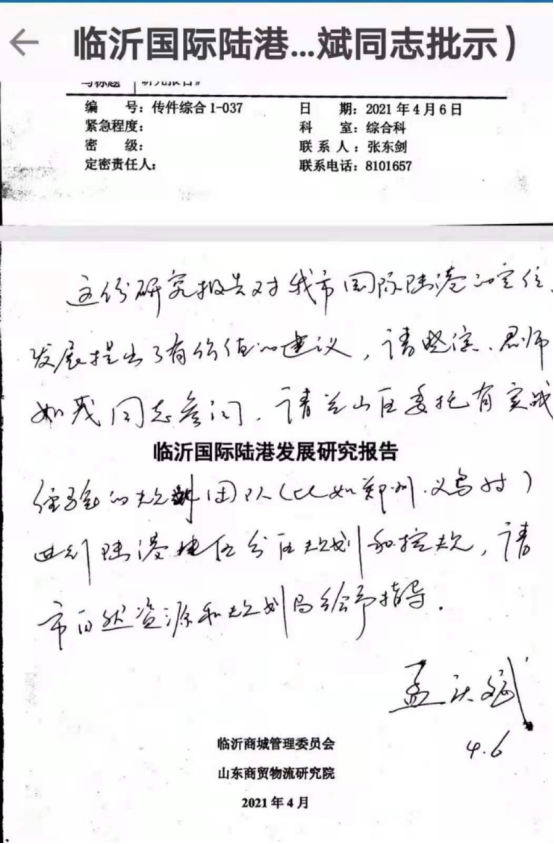 临沂国际陆港...斌同志批示）
编　　号：传件综合1-037　日　　期：2021年4月6日
紧急程度：　科　　室：综合科
密　　级：　联 系 人：张东剑
定密责任人：　联系电话：8101657
这份研究报告对我市国际陆港的定位、
发展提出了有价值的建议，请
如我同志参阅。请兰山区委托有实战
临沂国际陆港发展研究报告
经验的规划团队（比如郑州、义乌的）
陆港片区规划和控规，请
市自然资源和规划局给予指导。
孟庆斌
4.6
临沂商城管理委员会
山东商贸物流研究院
2021年4月